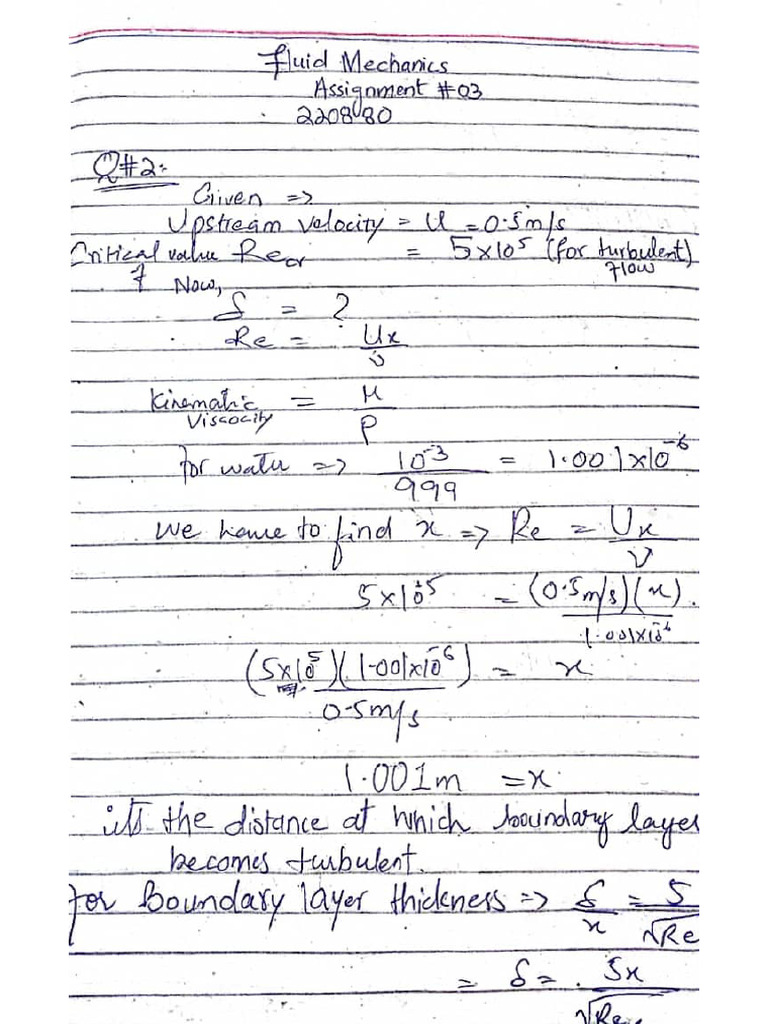 Fluid Mechanics
Assignment #03
220880
Q#2:
Given =>
Upstream velocity = U = 0.5m/s
Critical value Recr = 5x10⁵ (for turbulent)
flow
Now,
δ = ?
Re = Ux
ν
Kinematic = μ
Viscocity ρ
for water => 10⁻³ = 1.001x10⁻⁶
999
We have to find x => Re = Ux
ν
5x10⁵ = (0.5m/s)(x).
1.001x10⁻⁶
(5x10⁵)(1.001x10⁻⁶) = x
0.5m/s
1.001m = x.
it's the distance at which boundary layer
becomes turbulent.
for Boundary layer thickness => δ = 5
x √Re
= δ = 5x
√Re